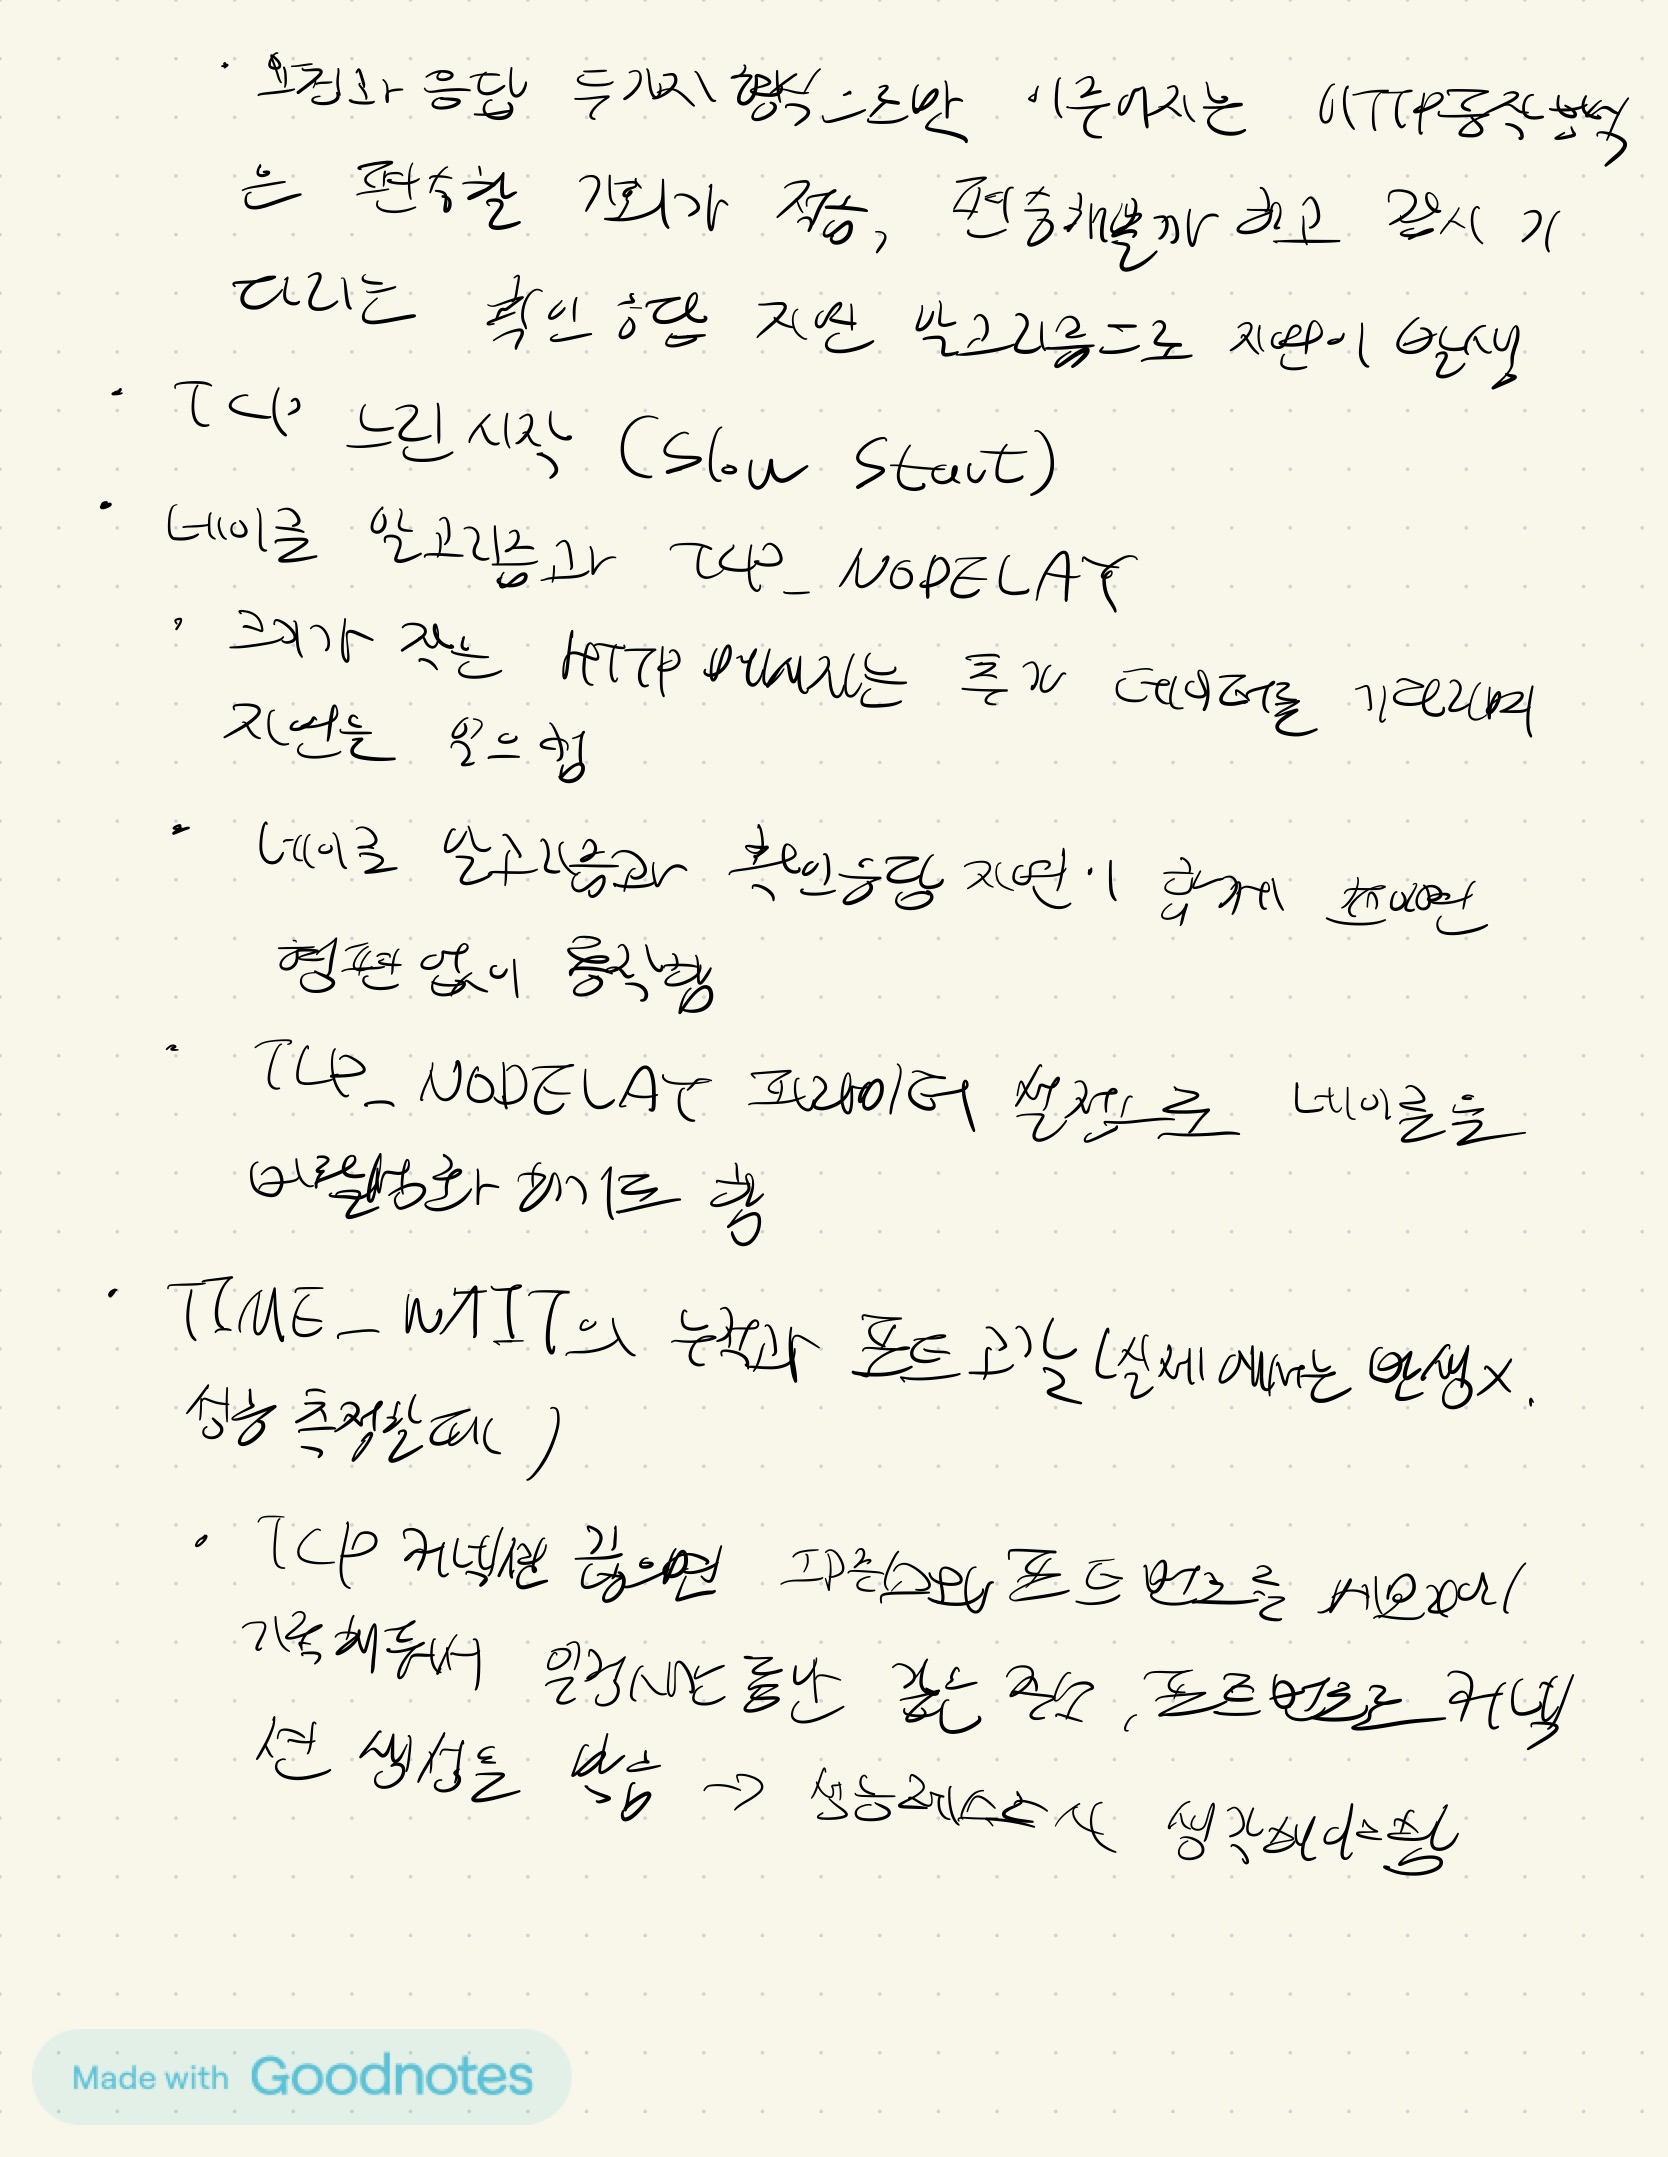 · 요청과 응답 두가지 형식으로만 이루어지는 HTTP동작방식
은 편승할 기회가 적음, 편승해볼까 하고 잠시 기
다리는 확인 응답 지연 알고리즘으로 지연이 발생
· TCP 느린시작 (Slow Start)
· 네이글 알고리즘과 TCP_NODELAY
· 크기가 작은 HTTP 메세지는 추가 데이터를 기다리며
지연을 일으힘
· 네이글 알고리즘과 확인응답 지연이 함께 쓰이면
형편없이 동작함
· TCP_NODELAY 파라미터 설정으로 네이글을
비활성화 하기도 함
· TIME_WAIT의 누적과 포트 고갈 (실제에서는 발생x.
성능 측정할때)
· TCP 커넥션 끊으면 IP주소와 포트 번호를 메모리에
기록해두어서 일정시간동안 같은 주소, 포트번호로 커넥
션 생성을 막음 → 성능테스트시 생각해야